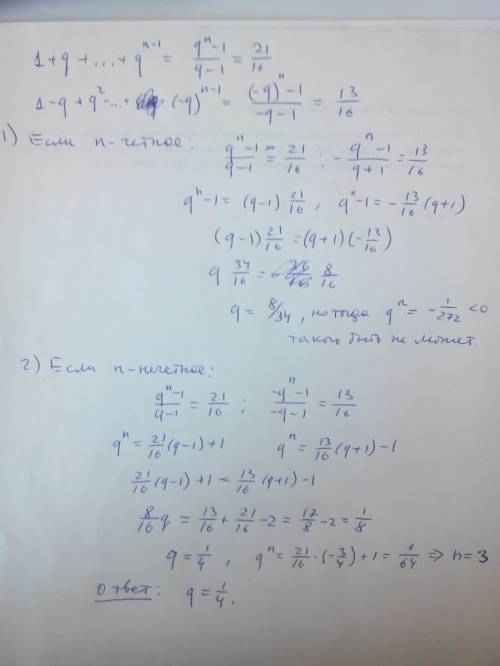 1+q+...+q^(n-1) = (q^n-1)/(q-1) = 21/16
1-q+q^2-...+ (-q)^(n-1) = ((-q)^n-1)/(-q-1) = 13/16
1) Если n-четное:
(q^n-1)/(q-1) = 21/16 ; -(q^n-1)/(q+1) = 13/16
q^n-1 = (q-1)·21/16 , q^n-1 = -13/16(q+1)
(q-1)21/16 = (q+1)(-13/16)
q 34/16 = 8/16
q = 8/34 , но тогда q^n = -1/272 <0
такого быть не может.
2) Если n-нечетное:
(q^n-1)/(q-1) = 21/16 ; (-q^n-1)/(-q-1) = 13/16
q^n = 21/16(q-1)+1 q^n = 13/16(q+1)-1
21/16(q-1)+1 = 13/16(q+1)-1
8/16 q = 13/16 + 21/16 - 2 = 17/8 - 2 = 1/8
q = 1/4 , q^n = 21/16·(-3/4)+1 = 1/64 ⇒ n=3
Ответ: q = 1/4.